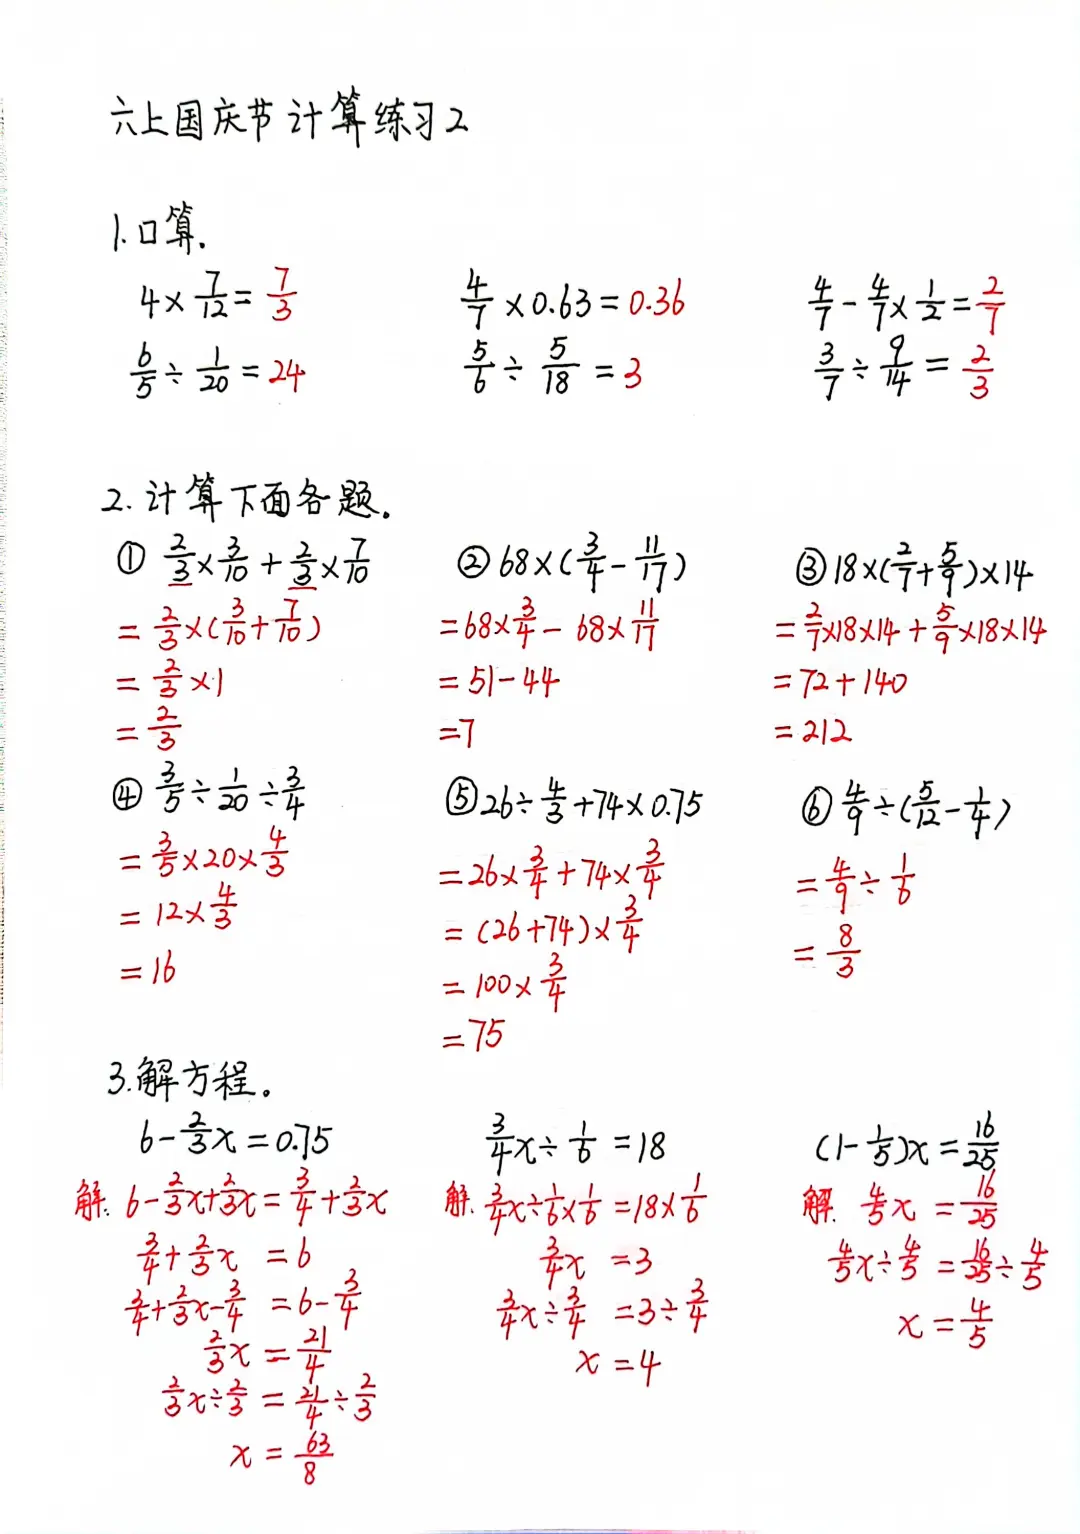 六上国庆节计算练习2
1.口算.
4×7/12=7/3 4/7×0.63=0.36 4/7-4/7×1/2=2/7
6/5÷1/20=24 5/6÷5/18=3 3/7÷9/14=2/3
2.计算下面各题.
① 2/3×3/10+2/3×7/10
=2/3×(3/10+7/10)
=2/3×1
=2/3
② 68×(3/4-11/17)
=68×3/4-68×11/17
=51-44
=7
③ 18×(2/7+5/9)×14
=2/7×18×14+5/9×18×14
=72+140
=212
④ 3/5÷1/20÷3/4
=3/5×20×4/3
=12×4/3
=16
⑤ 26÷4/3+74×0.75
=26×3/4+74×3/4
=(26+74)×3/4
=100×3/4
=75
⑥ 4/9÷(5/12-1/4)
=4/9÷1/6
=8/3
3.解方程。
6-2/3x=0.75
解:6-2/3x+2/3x=3/4+2/3x
3/4+2/3x=6
3/4+2/3x-3/4=6-3/4
2/3x=21/4
2/3x÷2/3=21/4÷2/3
x=63/8
3/4x÷1/6=18
解:3/4x÷1/6×1/6=18×1/6
3/4x=3
3/4x÷3/4=3÷3/4
x=4
(1-1/5)x=16/25
解:4/5x=16/25
4/5x÷4/5=16/25÷4/5
x=4/5